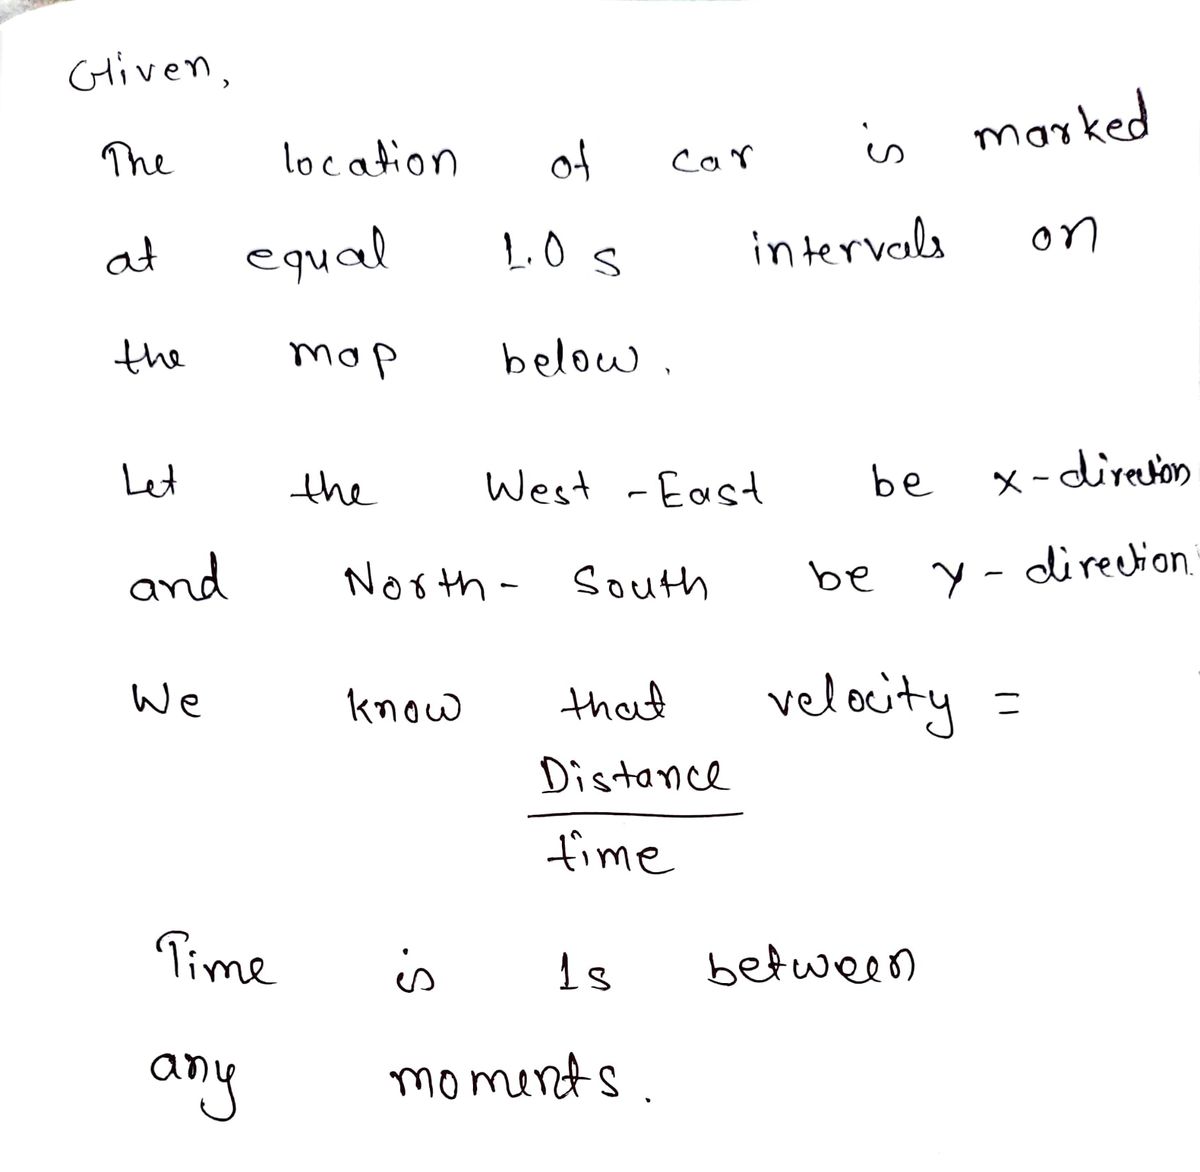 Given,
The location of car is marked
at equal 1.0 s intervals on
the map below.
Let the West-East be x-direction
and North-South be y-direction.
We know that velocity =
Distance
time
Time is 1s between
any moments.